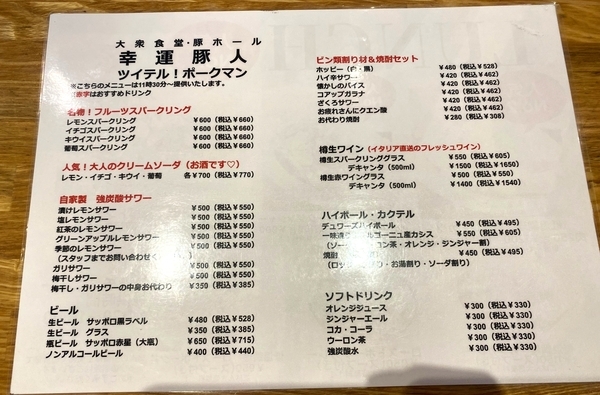 大衆食堂・豚ホール
幸運豚人
ツイテル！ポークマン
※こちらのメニューは11時30分～提供いたします。
赤字はおすすめドリンク
名物！フルーツスパークリング
レモンスパークリング ￥600（税込￥660）
イチゴスパークリング ￥600（税込￥660）
キウイスパークリング ￥600（税込￥660）
葡萄スパークリング ￥600（税込￥660）
人気！大人のクリームソーダ（お酒です♡）
レモン・イチゴ・キウイ・葡萄 各￥700（税込￥770）
自家製 強炭酸サワー
漬けレモンサワー ￥500（税込￥550）
塩レモンサワー ￥500（税込￥550）
紅茶のレモンサワー ￥500（税込￥550）
グリーンアップルレモンサワー ￥500（税込￥550）
季節のレモンサワー ￥500（税込￥550）
（スタッフまでお問い合わせく
ガリサワー ￥500（税込￥550）
梅干しサワー ￥500（税込￥550）
梅干し・ガリサワーの中身お代わり ￥350（税込￥385）
ビール
生ビール サッポロ黒ラベル ￥480（税込￥528）
生ビール グラス ￥350（税込￥385）
瓶ビール サッポロ赤星（大瓶） ￥650（税込￥715）
ノンアルコールビール ￥400（税込￥440）
ビン類割り材＆焼酎セット
ホッピー（白・黒） ￥480（税込￥528）
ハイ辛サワー ￥420（税込￥462）
懐かしのバイス ￥420（税込￥462）
コアップガラナ ￥420（税込￥462）
ざくろサワー ￥420（税込￥462）
お疲れさんにクエン酸 ￥420（税込￥462）
お代わり焼酎 ￥280（税込￥308）
樽生ワイン（イタリア直送のフレッシュワイン）
樽生スパークリンググラス ￥550（税込￥605）
デキャンタ（500ml） ￥1500（税込￥1650）
樽生赤ワイングラス ￥500（税込￥550）
デキャンタ（500ml） ￥1400（税込￥1540）
ハイボール・カクテル
デュワーズハイボール ￥450（税込￥495）
一味違 ルゴーニュ産カシス ￥550（税込￥605）
（ソー ロン茶・オレンジ・ジンジャー割）
焼酎 ￥450（税込￥495）
（ロッ り・お湯割り・ソーダ割り）
ソフトドリンク
オレンジジュース ￥300（税込￥330）
ジンジャーエール ￥300（税込￥330）
コカ・コーラ ￥300（税込￥330）
ウーロン茶 ￥300（税込￥330）
強炭酸水 ￥300（税込￥330）